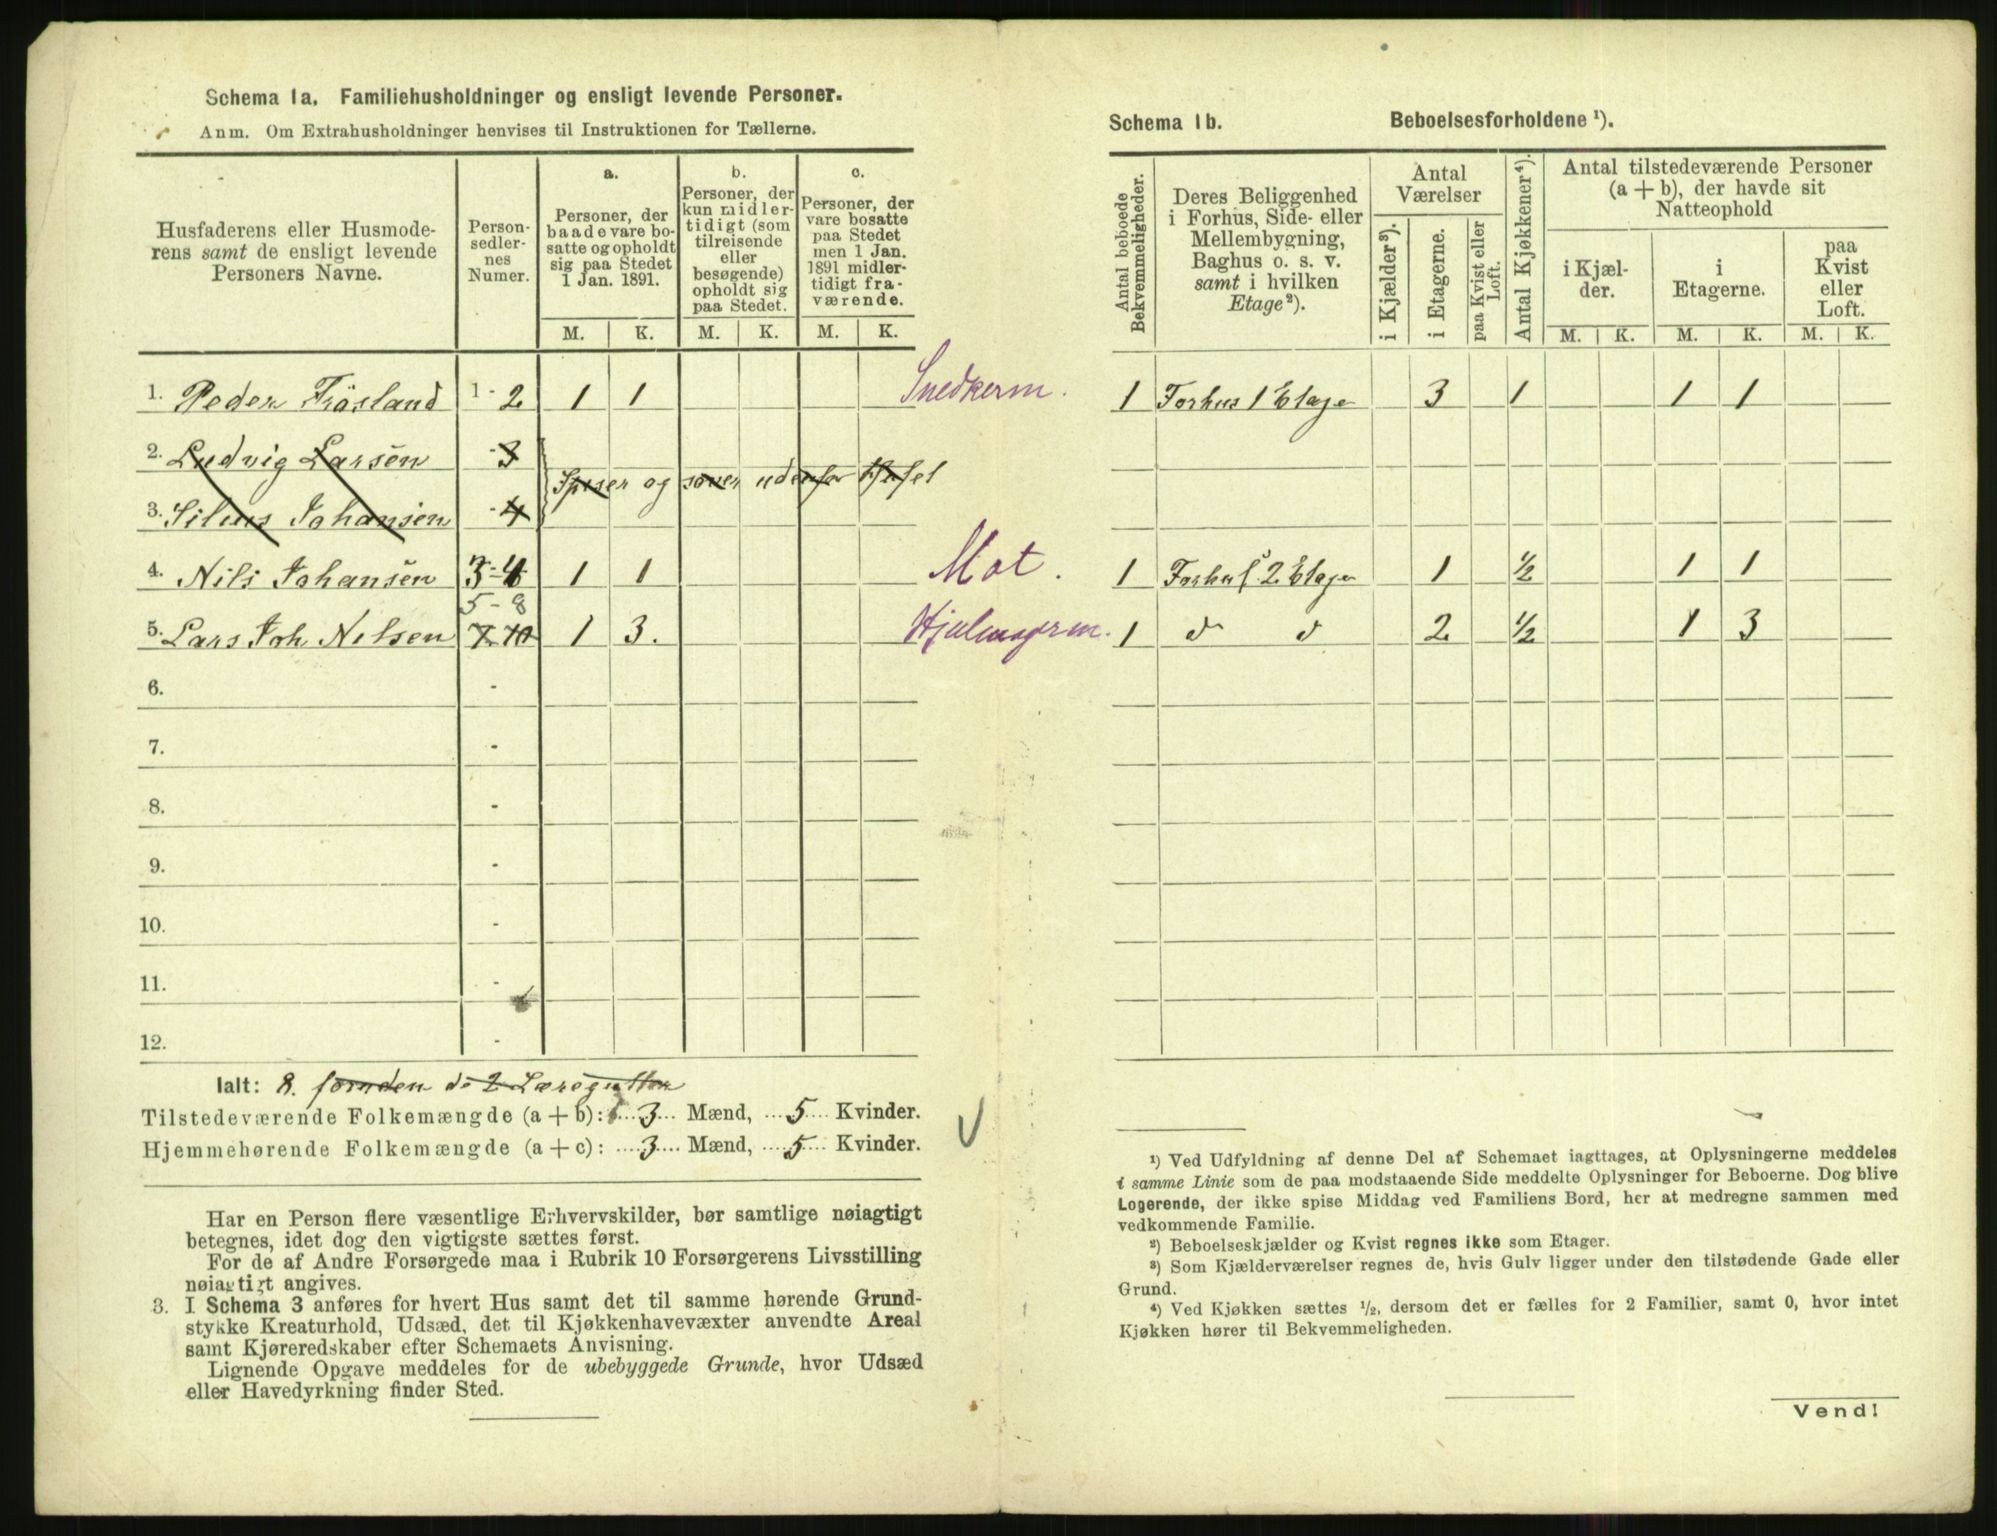 Schema 1a. Familiehusholdninger og ensligt levende Personer.
Anm. Om Extrahusholdninger henvises til Instruktionen for Tællerne.
Husfaderens eller Husmode-
rens samt de ensligt levende
Personers Navne.
Person-
sedler-
nes
Numer.
a.
Personer, der
baade vare bo-
satte og opholdt
sig paa Stedet
1 Jan. 1891.
b.
Personer, der
kun midler-
tidigt (som
tilreisende
eller
besøgende)
opholdt sig
paa Stedet.
c.
Personer, der
vare bosatte
paa Stedet
men 1 Jan.
1891 midler-
tidigt fra-
værende.
M. K. M. K. M. K.
1. Peder Frösland 1-2 1 1 Snedkerm.
2. Ludvig Larsen -3
Spiser og sover udenfor Huset
3. Silius Johansen -4
4. Nils Johansen 3-4 1 1 Mat.
5-8
5. Lars Joh Nilsen 7-10 1 3.
6. -
7. -
8. -
9. -
10. -
11. -
12. -
Ialt: 8. foruden de 2 Læregutter
Tilstedeværende Folkemængde (a + b): 3 Mænd, 5 Kvinder.
Hjemmehørende Folkemængde (a + c): 3 Mænd, 5 Kvinder.
Har en Person flere væsentlige Erhvervskilder, bør samtlige nøiagtigt
betegnes, idet dog den vigtigste sættes først.
For de af Andre Forsørgede maa i Rubrik 10 Forsørgerens Livsstilling
nøiagtigt angives.
3. I Schema 3 anføres for hvert Hus samt det til samme hørende Grund-
stykke Kreaturhold, Udsæd, det til Kjøkkenhavevæxter anvendte Areal
samt Kjøreredskaber efter Schemaets Anvisning.
Lignende Opgave meddeles for de ubebyggede Grunde, hvor Udsæd
eller Havedyrkning finder Sted.
Schema 1b. Beboelsesforholdene ¹).
Antal beboede
Bekvemmeligheder.
Deres Beliggenhed
i Forhus, Side- eller
Mellembygning,
Baghus o. s. v.
samt i hvilken
Etage²).
Antal
Værelser
i Kjælder³).
i Etagerne.
paa Kvist eller
Loft.
Antal Kjøkkener⁴).
Antal tilstedeværende Personer
(a + b), der havde sit
Natteophold
i Kjæl-
der.
i
Etagerne.
paa
Kvist
eller
Loft.
M. K. M. K. M. K.
1 Forhus 1 Etage 3 1 1 1
1 Forhus 2 Etage 1 ½ 1 1
1 d d 2 ½ 1 3
¹) Ved Udfyldning af denne Del af Schemaet iagttages, at Oplysningerne meddeles
i samme Linie som de paa modstaaende Side meddelte Oplysninger for Beboerne. Dog blive
Logerende, der ikke spise Middag ved Familiens Bord, her at medregne sammen med
vedkommende Familie.
²) Beboelseskjælder og Kvist regnes ikke som Etager.
³) Som Kjælderværelser regnes de, hvis Gulv ligger under den tilstødende Gade eller
Grund.
⁴) Ved Kjøkken sættes ½, dersom det er fælles for 2 Familier, samt 0, hvor intet
Kjøkken hører til Bekvemmeligheden.
Vend!